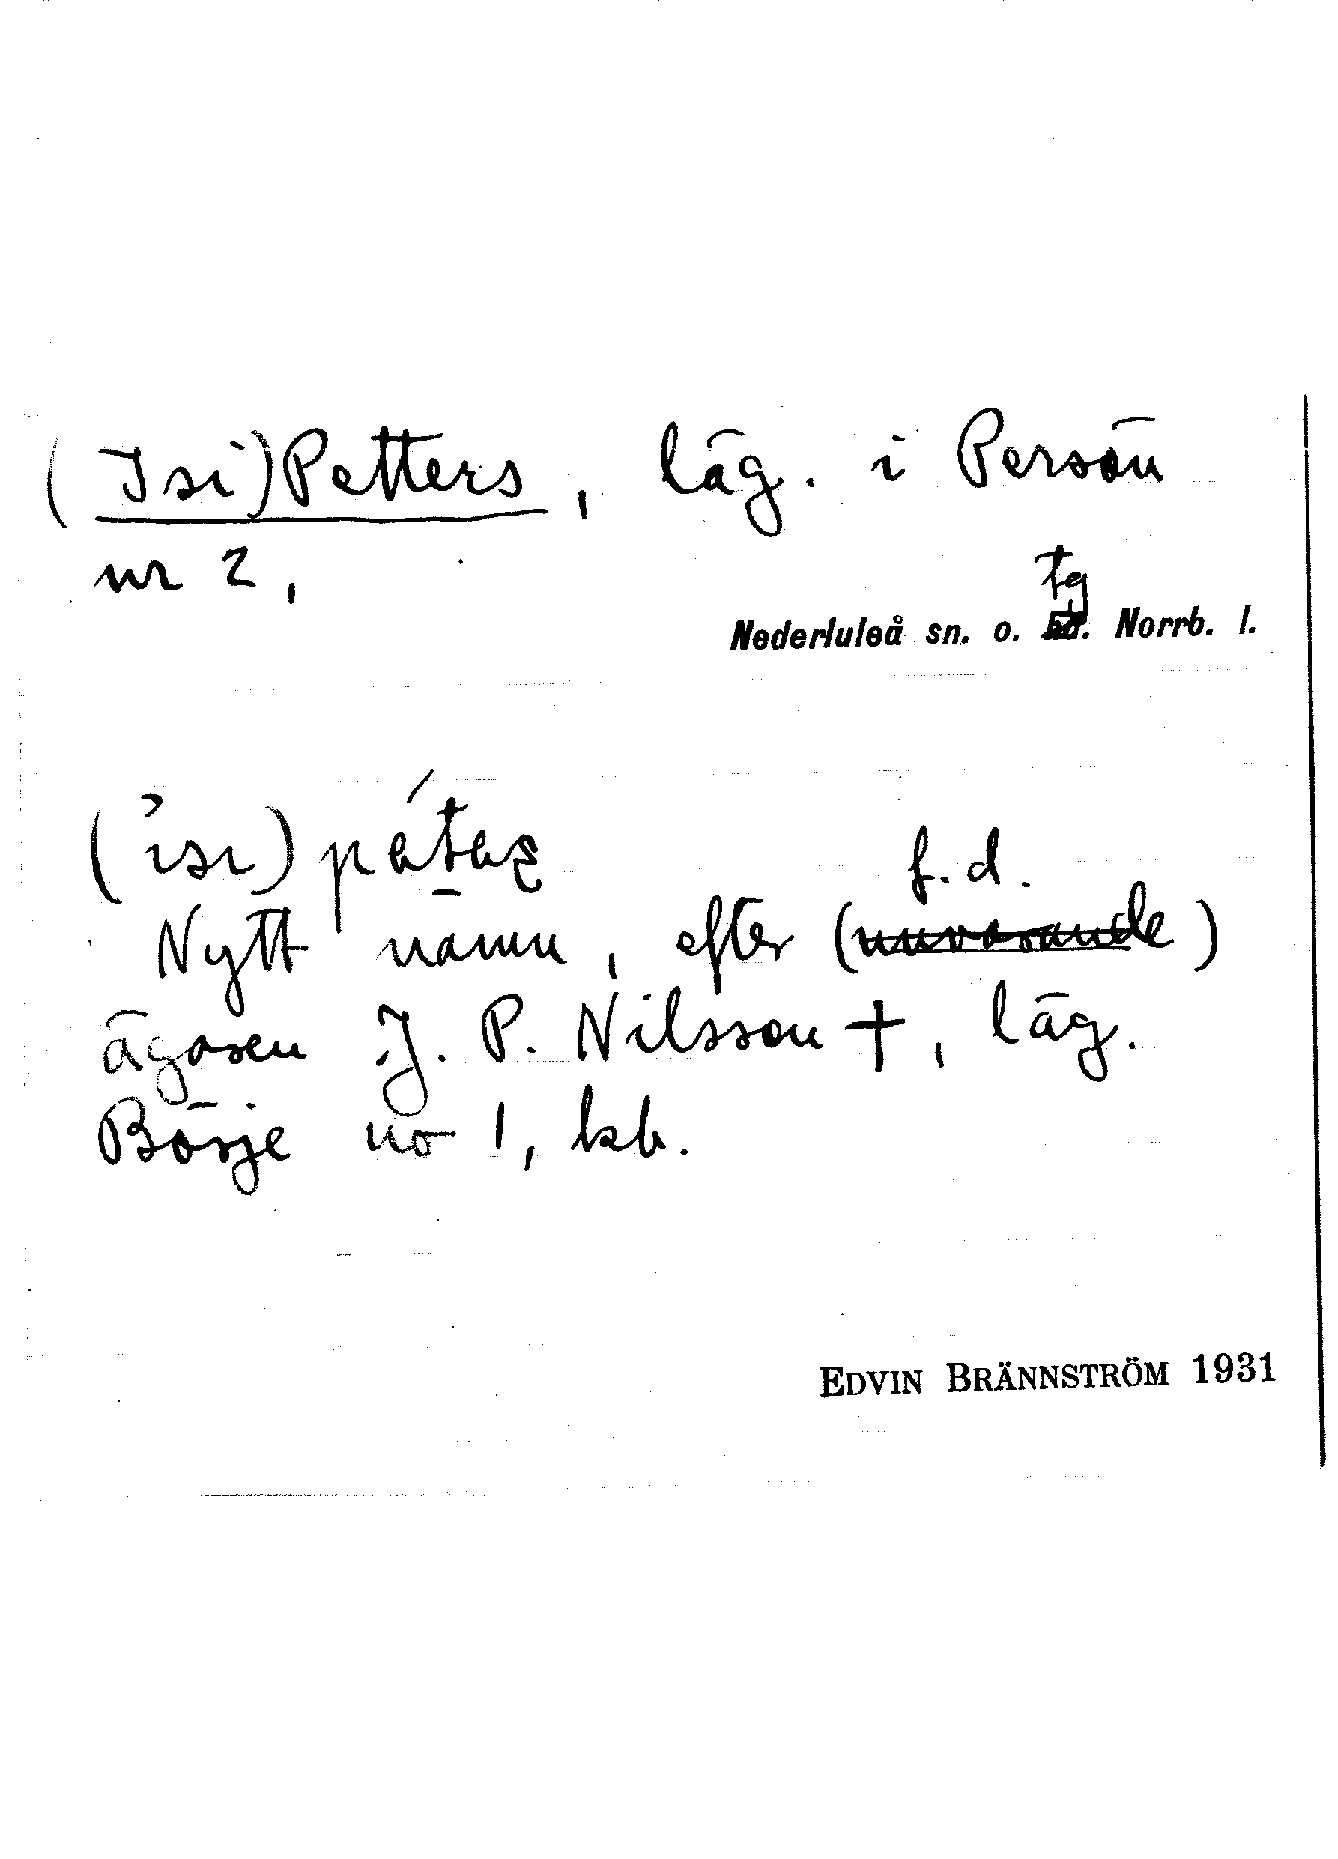 (Isi)Petters, läg. i Persön
nr 2,
tg
Nederluleå sn. o. hd. Norrb. l.
f. d.
Nytt namn, efter (nuvarande)
ägaren J. P. Nilsson †, läg.
Börje no 1, kb.
EDVIN BRÄNNSTRÖM 1931